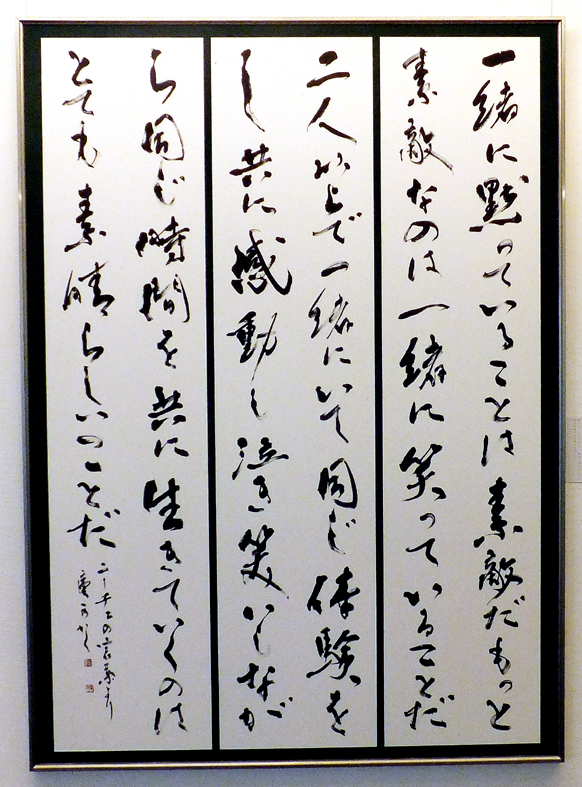 一緒に黙っていることは素敵だもっと
素敵なのは一緒に笑っていることだ
二人以上で一緒にいて同じ体験を
し共に感動し泣き笑いしなが
ら同じ時間を共に生きていくのは
とても素晴らしいことだ
ニーチェの言葉より